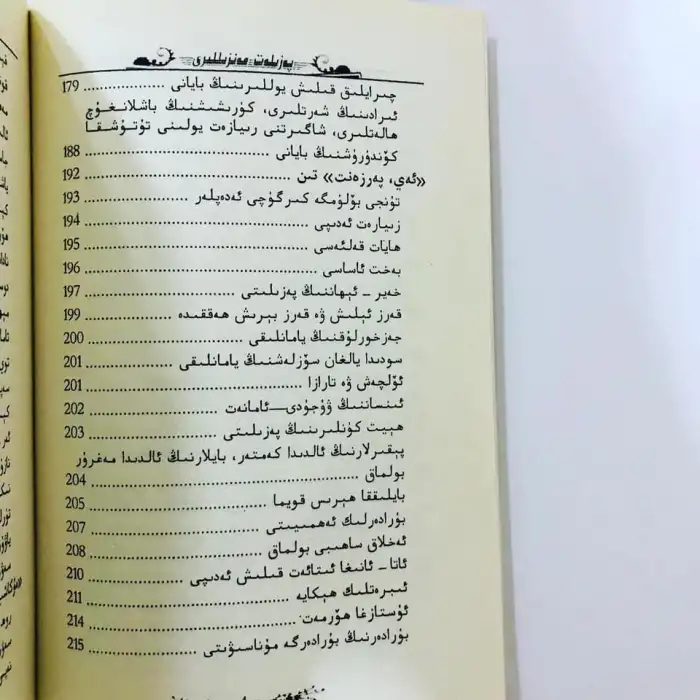 پەزىلەت مەنزىللىرى
چىرايلىق قىلىش يوللىرىنىڭ بايانى ................. 179
ئىرادىنىڭ شەرتلىرى، كۈرىشىشنىڭ باشلانغۇچ
ھالەتلىرى، شاگىرتنى رىيازەت يولىنى تۇتۇشقا
كۆندۈرۈشنىڭ بايانى ................. 188
«ئەي، پەرزەنت» تىن ................. 192
تۇنجى بۆلۈمگە كىرگۈچى ئەدەپلەر ................. 193
زىيارەت ئەدىپى ................. 194
ھايات قەلئەسى ................. 195
بەخت ئاساسى ................. 196
خەير - ئېھاننىڭ پەزىلىتى ................. 197
قەرز ئېلىش ۋە قەرز بېرىش ھەققىدە ................. 199
جەزخورلۇقنىڭ يامانلىقى ................. 200
سودىدا يالغان سۆزلەشنىڭ يامانلىقى ................. 201
ئۆلچەش ۋە تارازا ................. 201
ئىنساننىڭ ۋۇجۇدى—ئامانەت ................. 202
ھېيت كۈنلىرىنىڭ پەزىلىتى ................. 203
پېقىرلارنىڭ ئالدىدا كەمتەر، بايلارنىڭ ئالدىدا مەغرۇر
بولماق ................. 204
بايلىققا ھېرىس قويما ................. 205
بۇرادەرلىك ئەھمىيىتى ................. 207
ئەخلاق ساھىبى بولماق ................. 208
ئاتا- ئانىغا ئىتائەت قىلىش ئەدىپى ................. 210
ئىبرەتلىك ھېكايە ................. 211
ئۇستازغا ھۆرمەت ................. 214
بۇرادەرنىڭ بۇرادەرگە مۇناسىۋىتى ................. 215